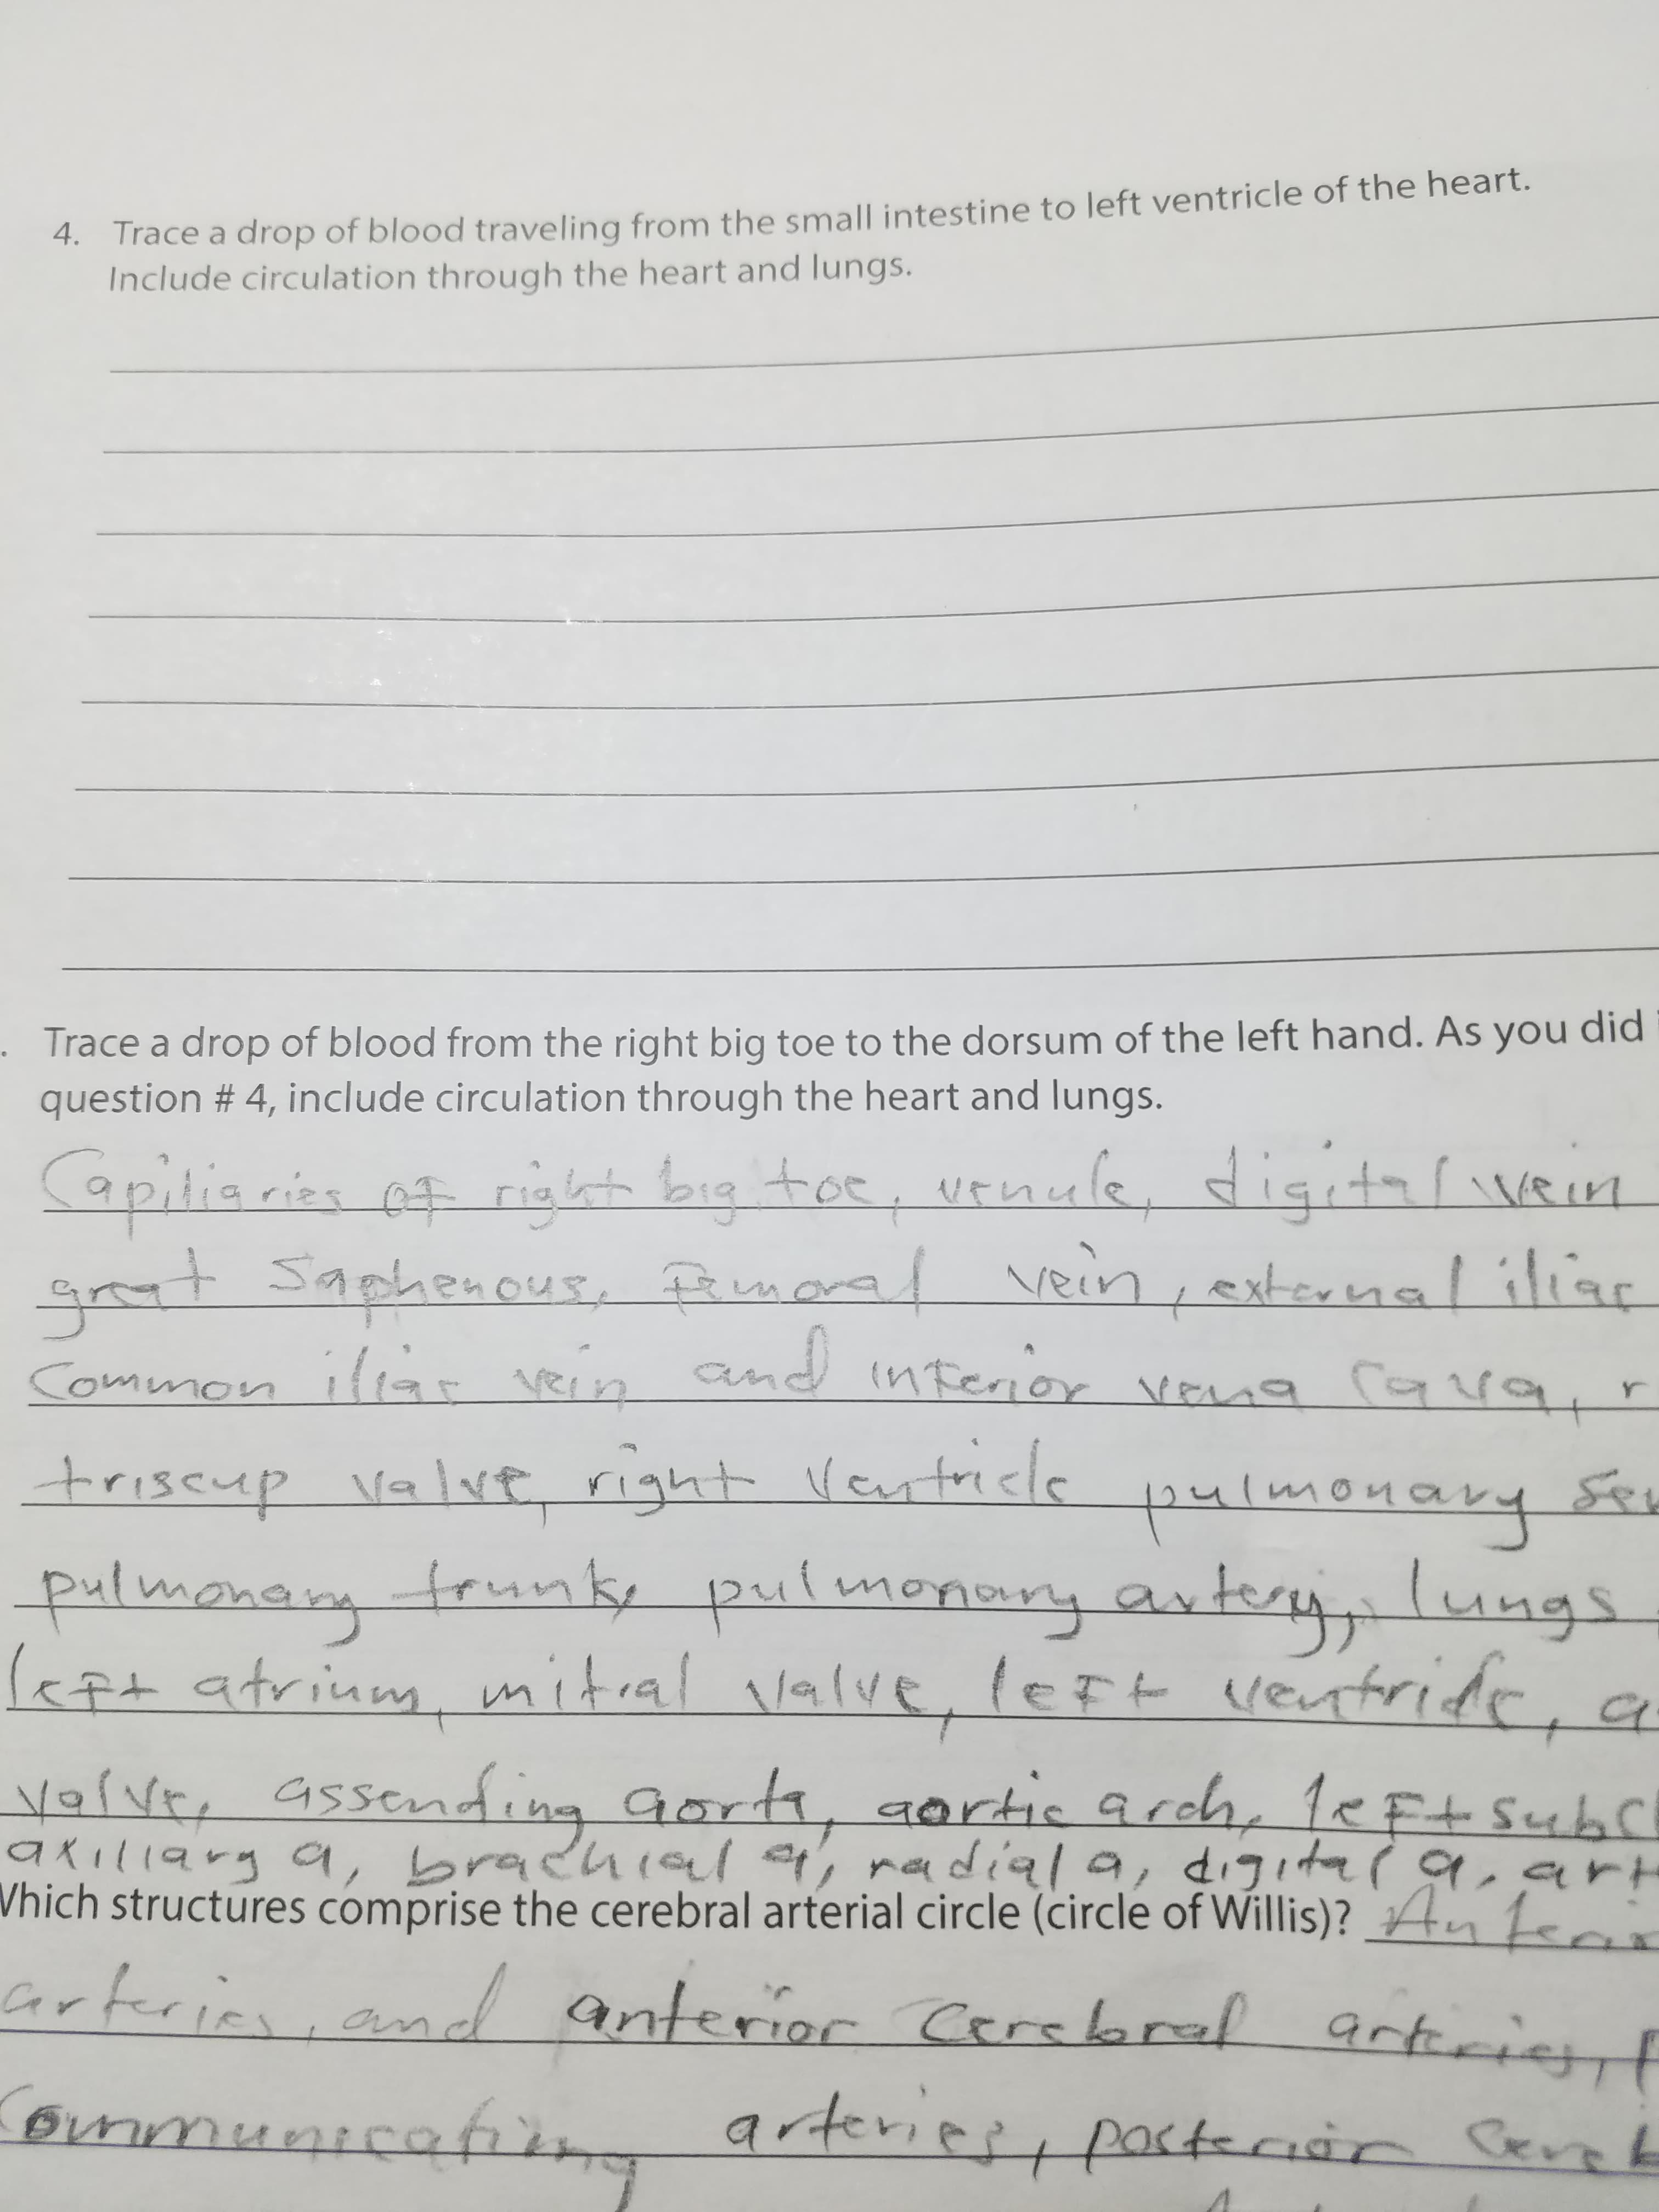 4. Trace a drop of blood traveling from the small intestine to left ventricle of the heart.
Include circulation through the heart and lungs.
. Trace a drop of blood from the right big toe to the dorsum of the left hand. As you did
question # 4, include circulation through the heart and lungs.
Capiliaries of right big toe, venule, digital vein
great Saphenous, Femoral vein, external iliac
Common iliac vein and inferior vena cava, r
triscup valve, right Ventricle pulmonary
pulmonary trunk, pulmonary artery, lungs
left atrium, mitral valve, left ventricle, a
valve, assending aorta, aortic arch, left subcl
axillary a, brachial a, radial a, digital a, art
Which structures comprise the cerebral arterial circle (circle of Willis)? Anterior
arteries, and anterior Cerebral arteries, p
Communicating arteries, posterior Cereb